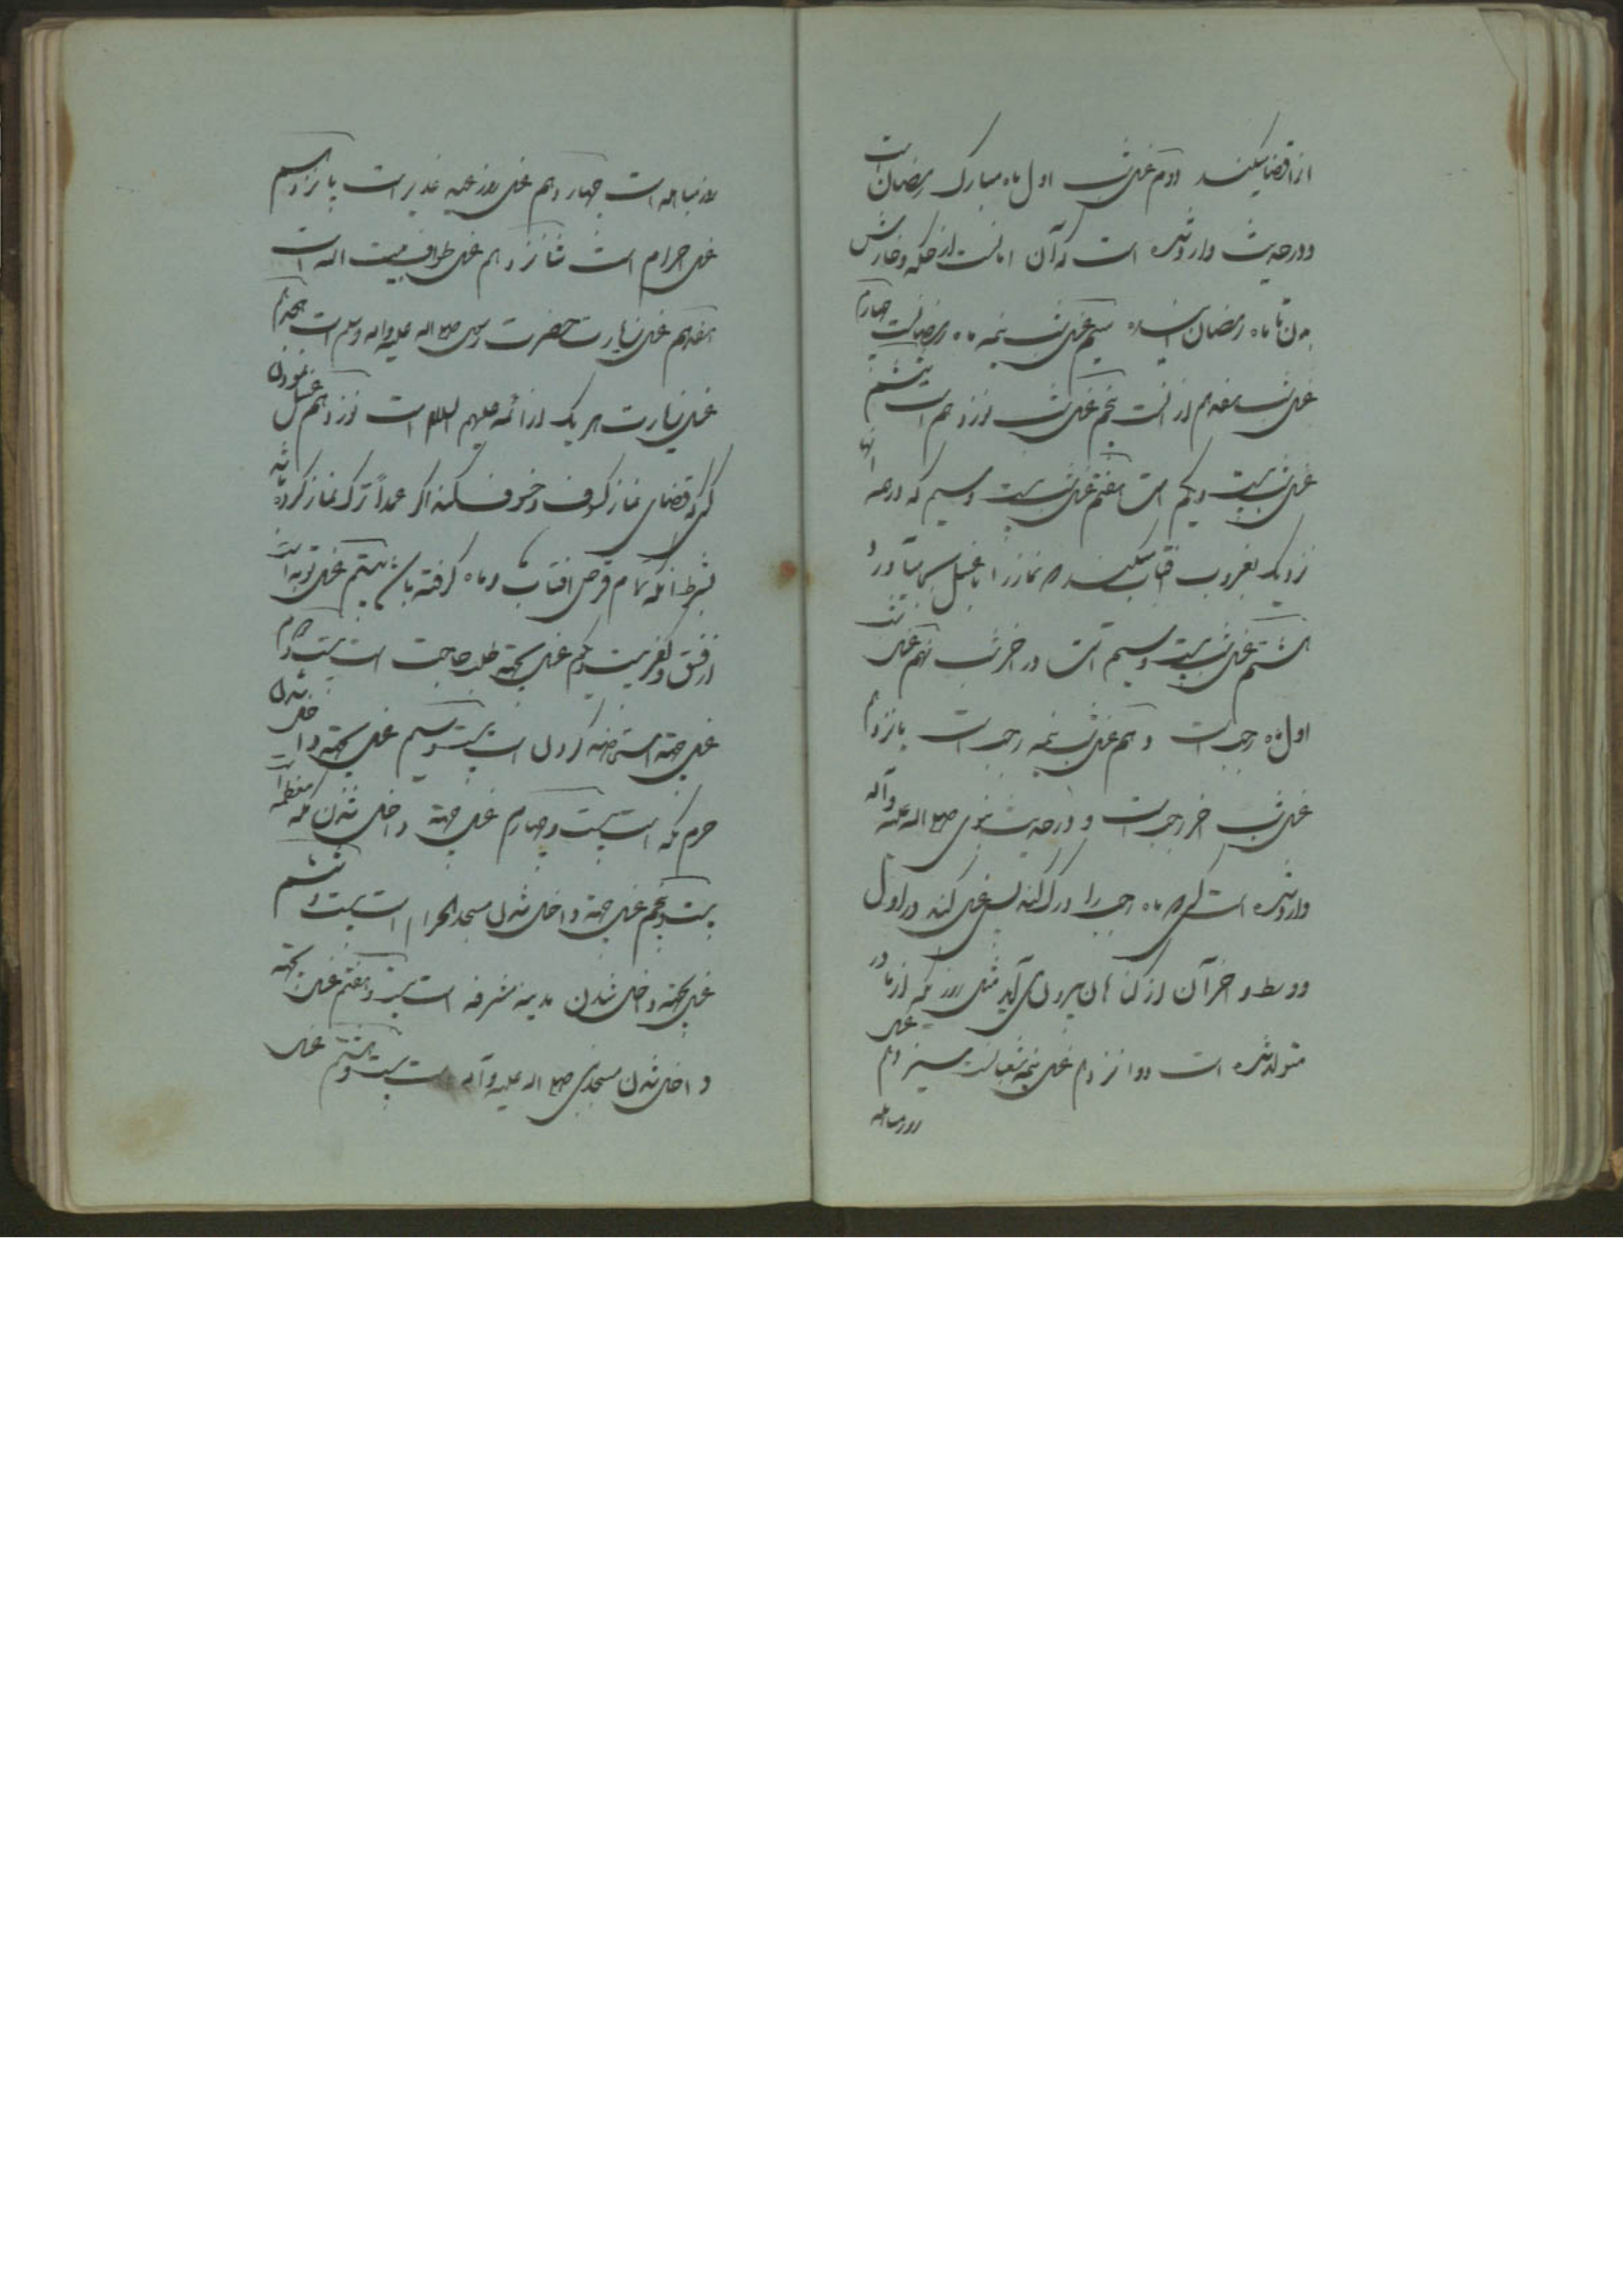 از قضا میکند دویم غسل شب اول ماه مبارک رمضان است
و در حدیث وارد شده است که آن امانست از حکه و خارش
بدن تا ماه رمضان آینده سیم غسل شب نیمه ماه رمضانست چهارم
غسل شب هفدهم آنست پنجم غسل شب نوزدهم است ششم
غسل شب بیست و یکم است هفتم غسل شب بیست و سیم که در همه آنها
نزدیک بغروب آفتاب میکند که نماز را با غسل بجا آورد و
هشتم غسل شب بیست و سیم است در آخر شب نهم غسل شب
اول ماه رجب است دهم غسل شب نیمه رجب است یازدهم
غسل شب آخر رجب است و در حدیث نبوی صلی الله علیه وآله
وارد شده است که هر که ماه رجب را درک کند پس غسل کند در اول
و وسط و آخر آن از گناهان بیرون می آید مثل روزی که از مادر
متولد شده است دوازدهم غسل نیمه شعبانست سیزدهم غسل
روز مباهله
روز مباهله است چهاردهم غسل روز عید غدیر است پانزدهم
غسل احرام است شانزدهم غسل طواف بیت الله است
هفدهم غسل زیارت حضرت رسول صلی الله علیه واله وسلم است هجدهم
غسل زیارت هر یک از ائمه علیهم السلام است نوزدهم غسل نمودن
کسی که قضای نماز کسوف و خسوف میکند اگر عمداً ترک نماز کرده باشد
بشرط آنکه تمام قرص افتاب و ماه گرفته باشد بیستم غسل توبه است
از فسق و کفر بیست و یکم غسل بجهة طلب حاجت است بیست و دویم
غسل جهة استخاره کردن است بیست و سیم غسل بجهة داخل شدن
حرم مکه است بیست و چهارم غسل جهة داخل شدن مکه معظمه است
بیست و پنجم غسل جهة داخل شدن مسجد الحرام است بیست و ششم
غسل بجهة داخل شدن مدینه مشرفه است بیست و هفتم غسل بجهة
داخل شدن مسجد نبی صلی الله علیه وآله است بیست و هشتم غسل